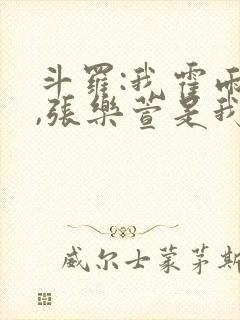 斗羅:我霍雨
,張樂萱是我
威尔士蒙茅斯